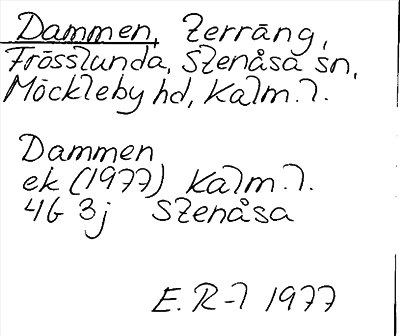 Dammen, terräng,
Frösslunda, Stenåsa sn,
Möckleby hd, Kalm. l.
Dammen
ek (1977) Kalm. l.
4G 3j Stenåsa
E. R-l 1977